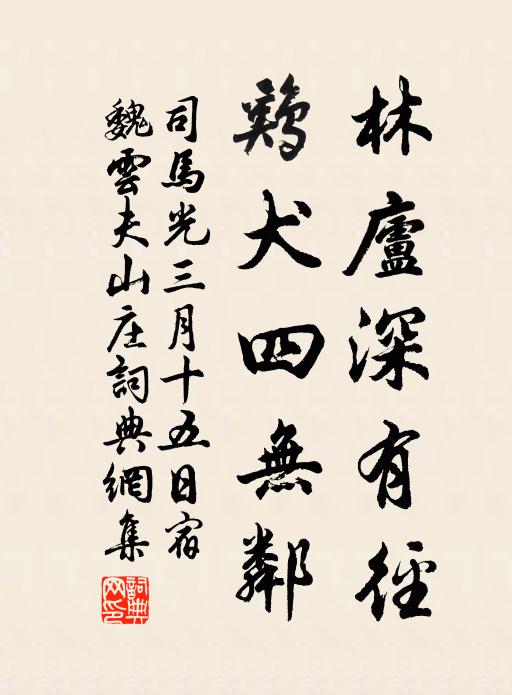 林廬深有徑
鷄犬四無鄰
司馬光三月十五日宿
魏雲夫山庄詞典網集